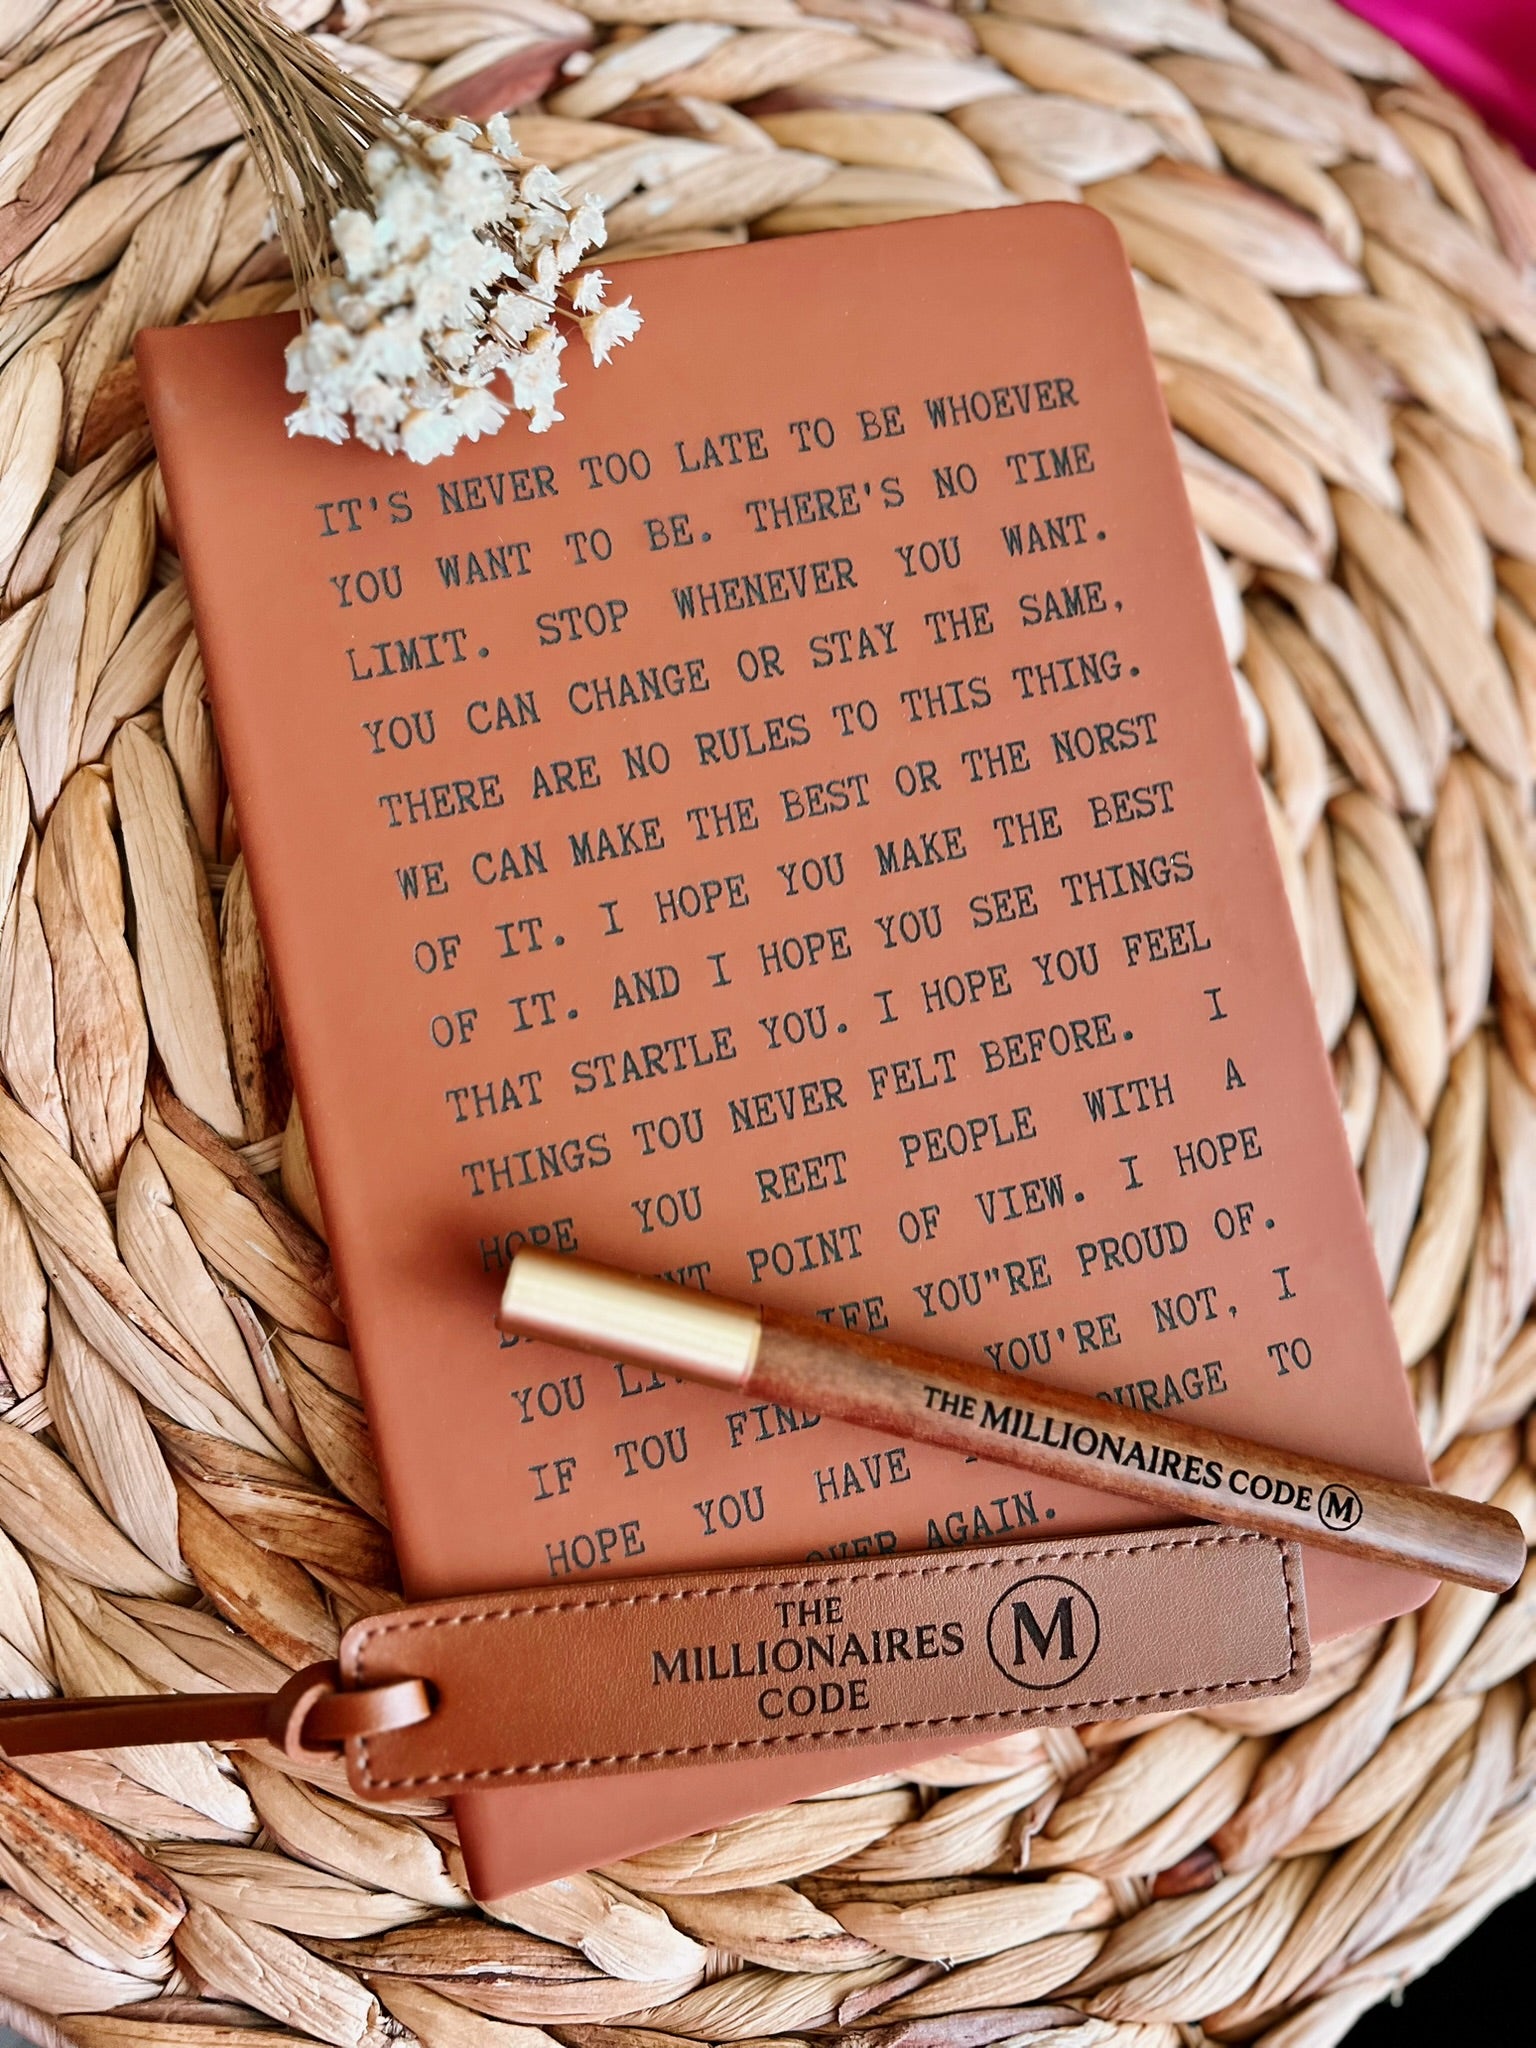 IT'S NEVER TOO LATE TO BE WHOEVER
YOU WANT TO BE. THERE'S NO TIME
LIMIT. STOP WHENEVER YOU WANT.
YOU CAN CHANGE OR STAY THE SAME,
THERE ARE NO RULES TO THIS THING.
WE CAN MAKE THE BEST OR THE NORST
OF IT. I HOPE YOU MAKE THE BEST
OF IT. AND I HOPE YOU SEE THINGS
THAT STARTLE YOU. I HOPE YOU FEEL
THINGS TOU NEVER FELT BEFORE. I
HOPE YOU REET PEOPLE WITH A
POINT OF VIEW. I HOPE
YOU YOU"RE PROUD OF.
IF TOU FIND YOU'RE NOT, I
HOPE YOU HAVE TO
OVER AGAIN.
THE MILLIONAIRES CODE M
THE
MILLIONAIRES M
CODE